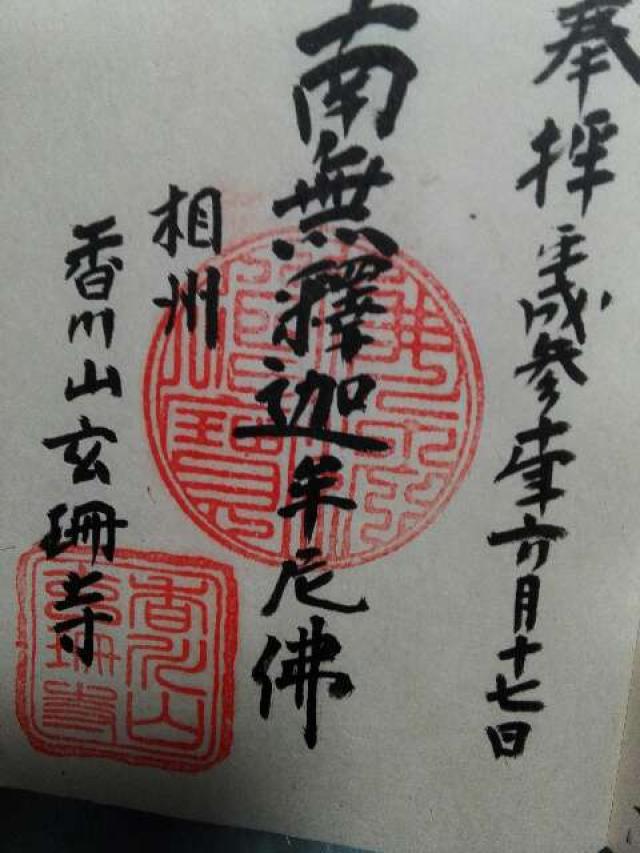 奉拝 平成参十年六月十七日
南無釋迦牟尼佛
相州
香川山玄珊寺
香川山
玄珊寺